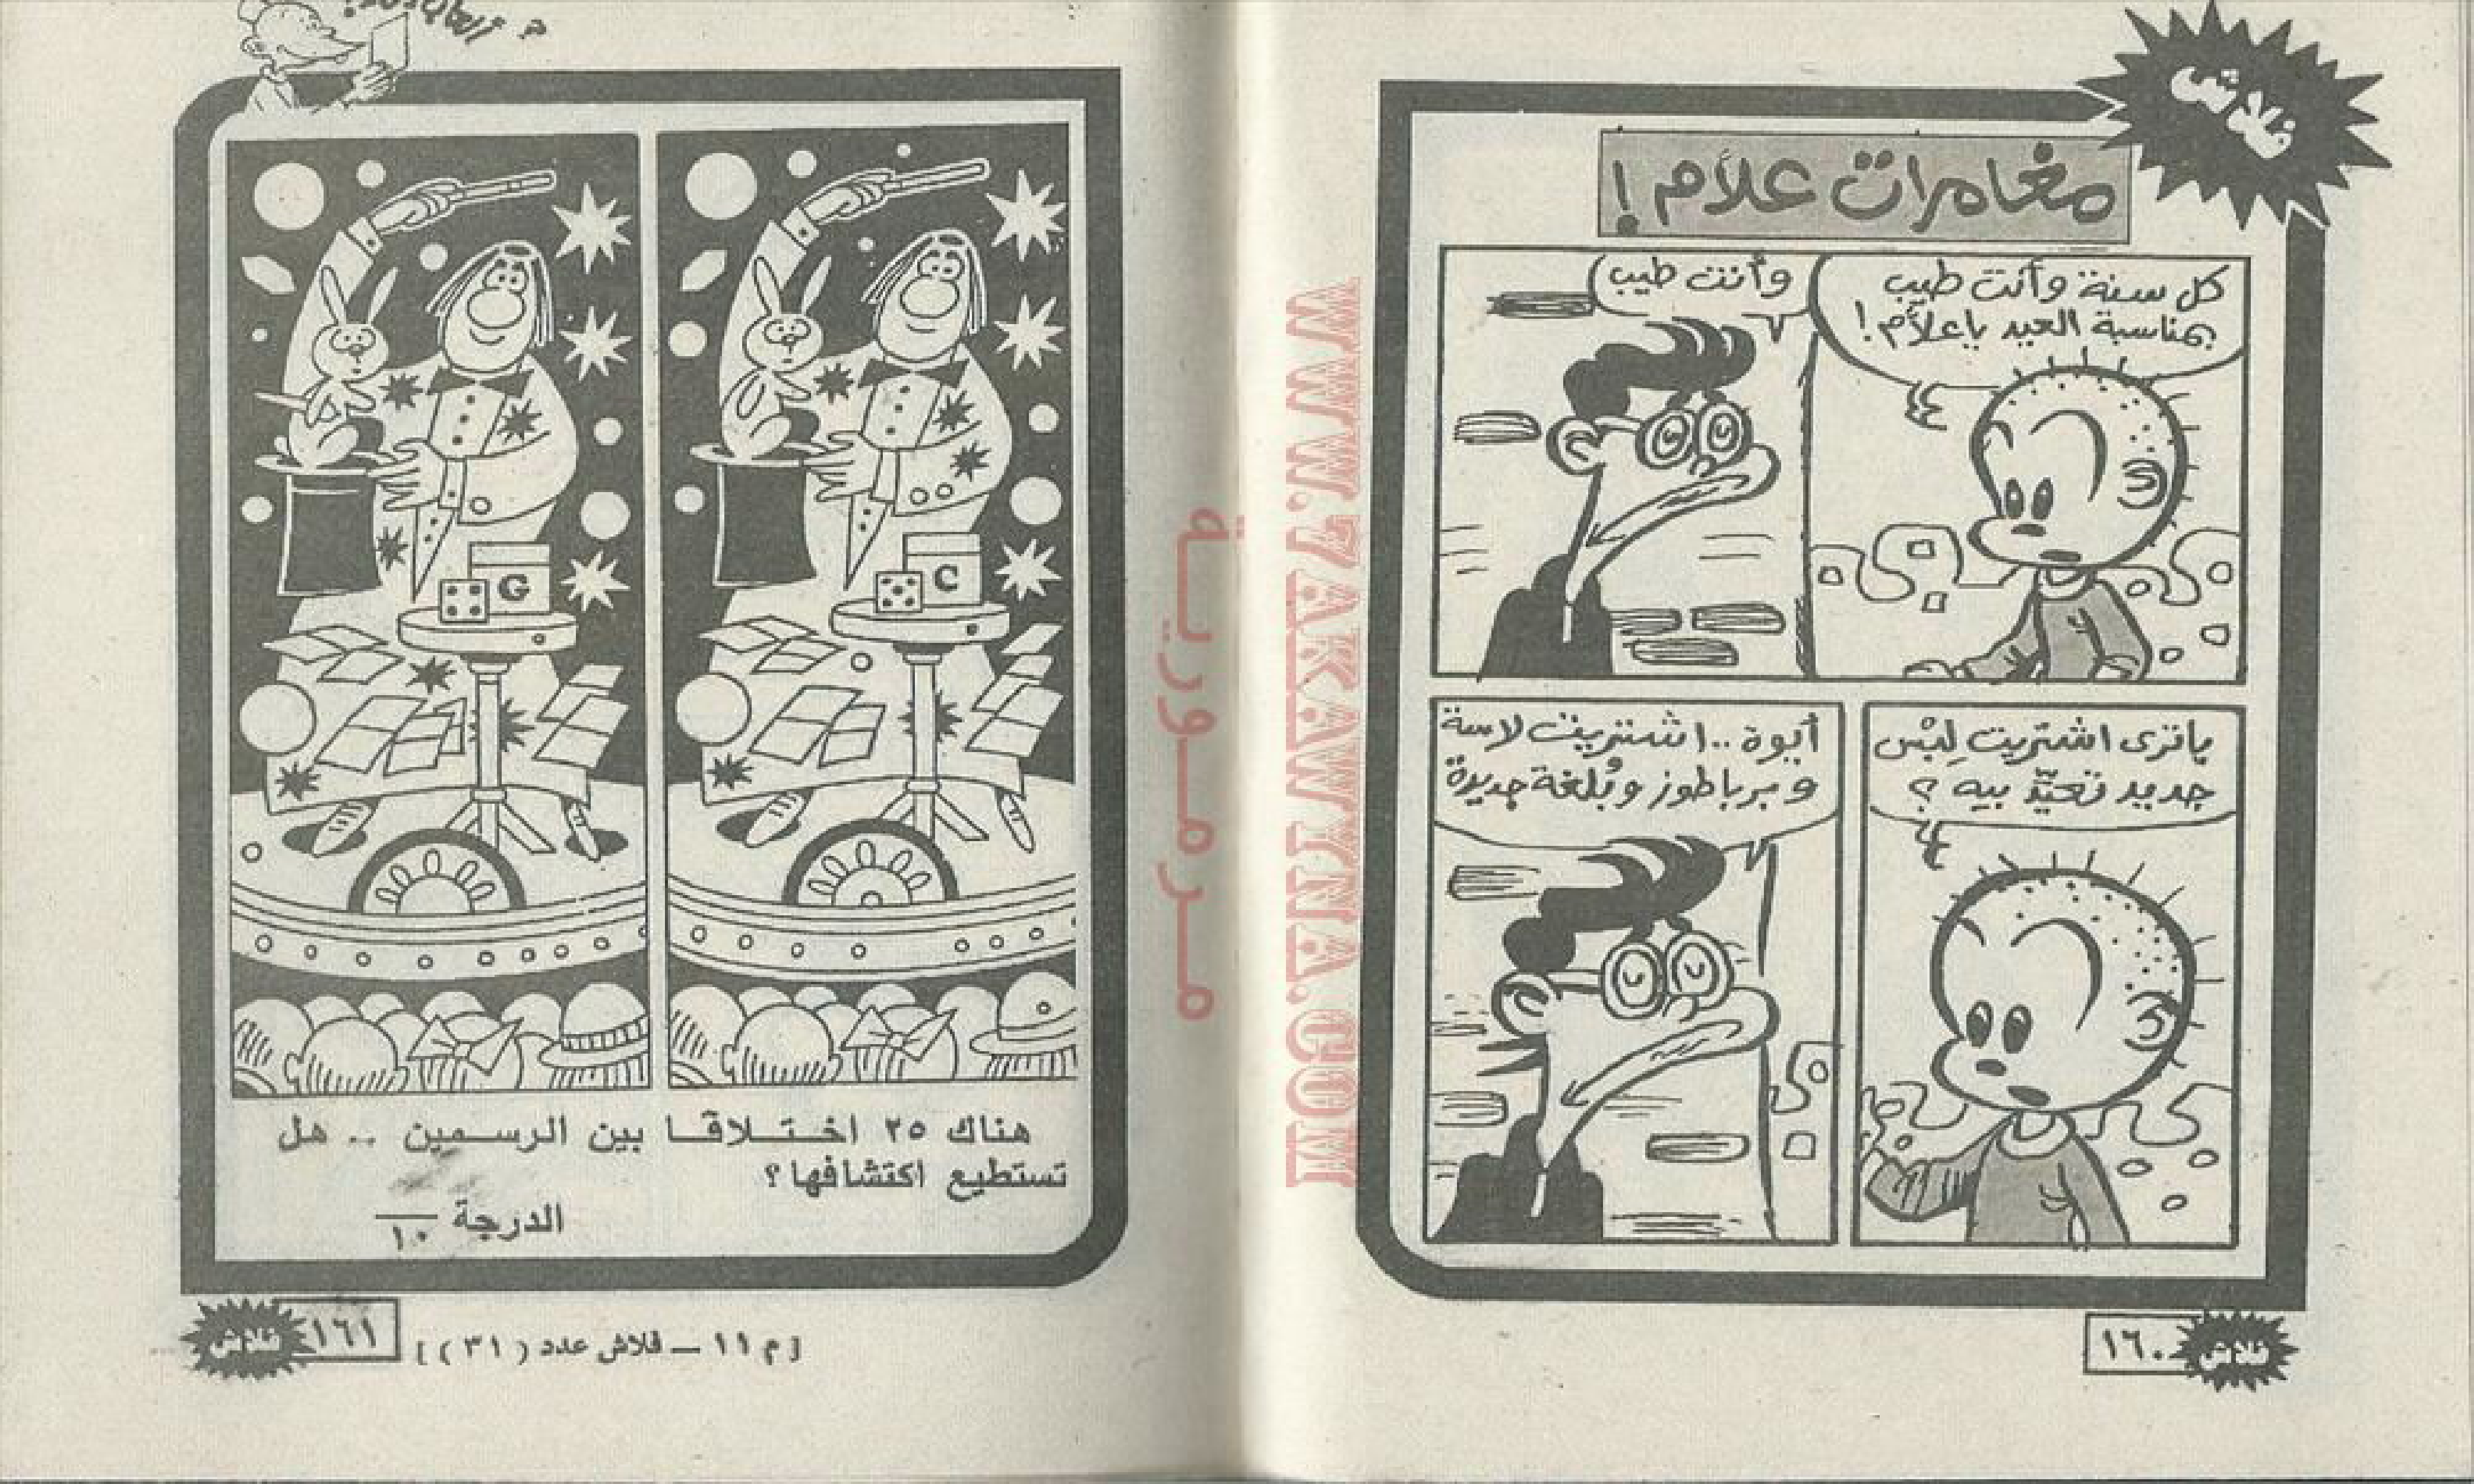 فلاش
مغامرات علام !
كل سنة وأنت طيب
بمناسبة العيد ياعلام !
وأنت طيب
ياترى اشتريت لِبْس
جديد تعيّد بيه ؟
أيوة .. اشتريت لاسة
و برباطوز وبُلغة جديدة
١٦٠
فلاش
WWW.7AKAWYNA.COM
مرمورية
G
C
هناك ٢٥ اختلافا بين الرسمين .. هل
تستطيع اكتشافها ؟
الدرجة ١٠
[ م ١١ – فلاش عدد ( ٣١ ) ]
١٦١
فلاش